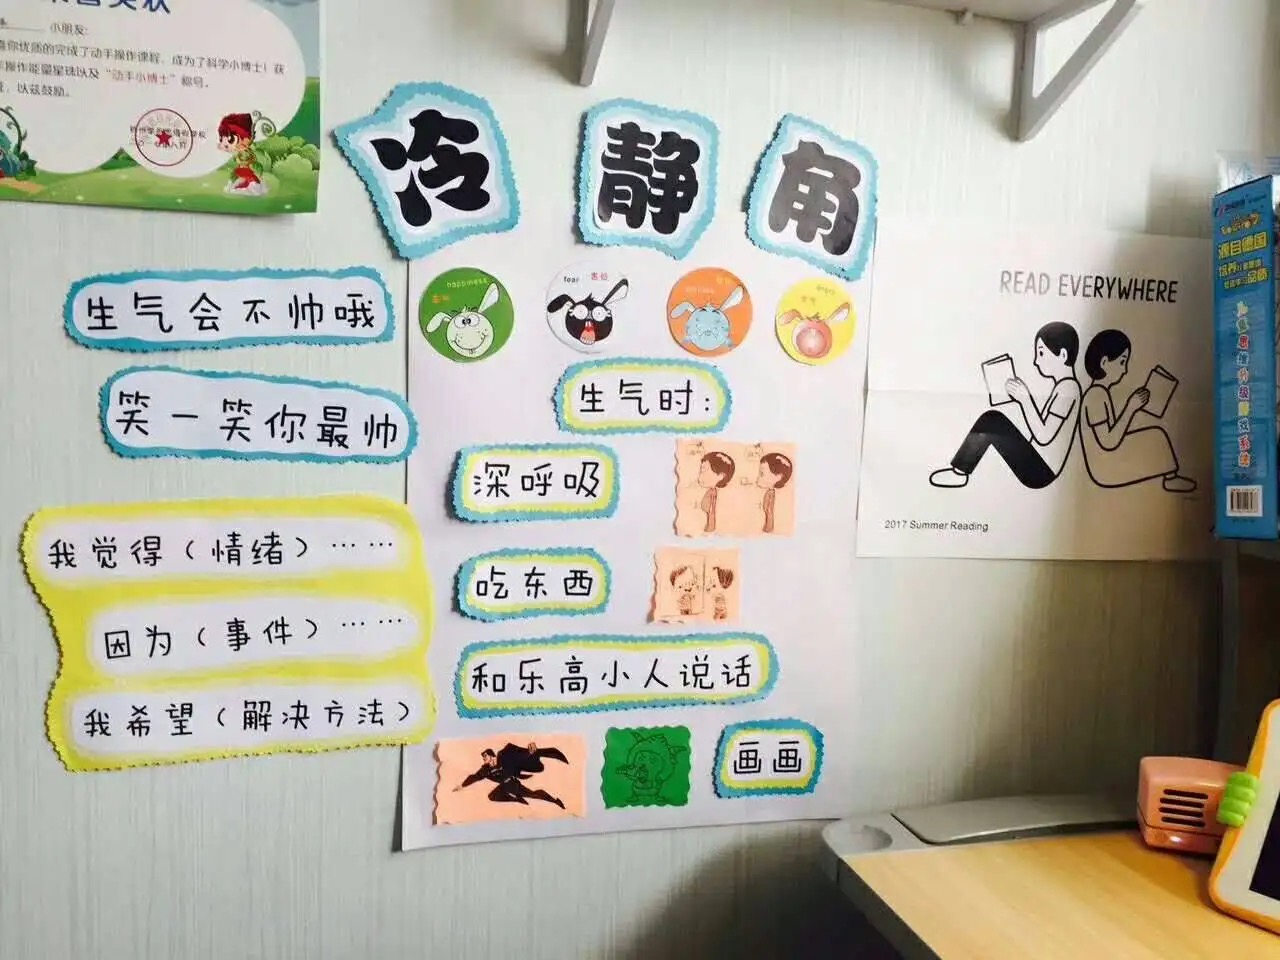 小朋友:
你优质的完成了动手操作课程, 成为了科学小博士! 获
操作能量星球以及“动手小博士”称号。
以兹鼓励。
冷静角
happiness
fear 害怕
生气会不帅哦
笑一笑你最帅
我觉得(情绪)……
因为(事件)……
我希望(解决方法)
生气时:
深呼吸
吃东西
和乐高小人说话
画画
READ EVERYWHERE
2017 Summer Reading
源自德国